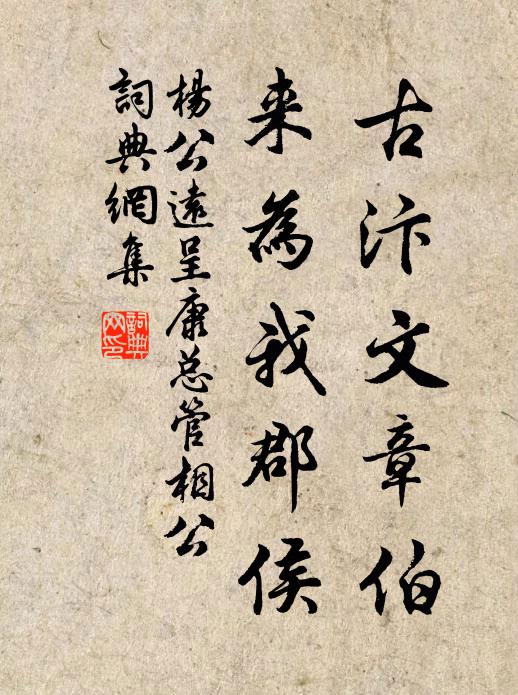 古汴文章伯
来為我郡侯
楊公遠呈康总管相公
詞典網集
詞典网印